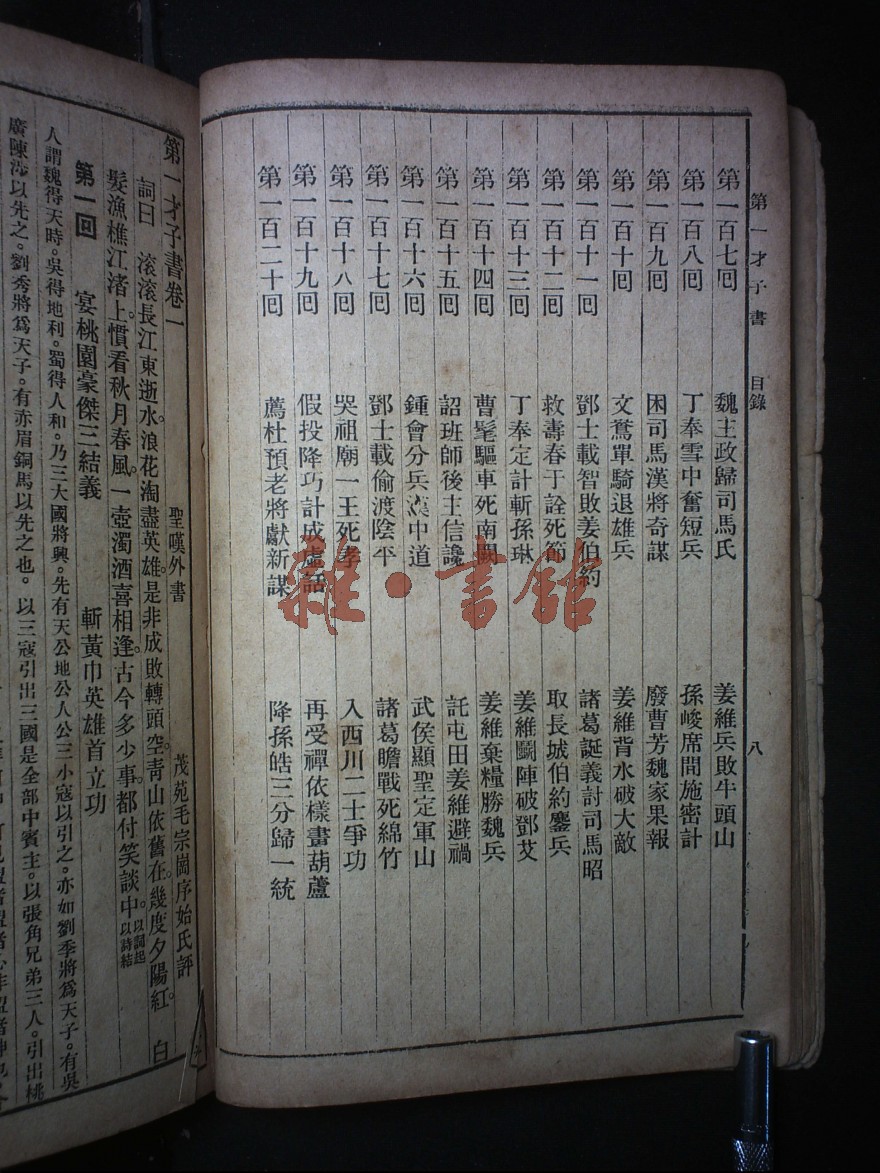 第一才子書 目錄 八
第一百七回 魏主政歸司馬氏 姜維兵敗牛頭山
第一百八回 丁奉雪中奮短兵 孫峻席間施密計
第一百九回 困司馬漢將奇謀 廢曹芳魏家果報
第一百十回 文鴦單騎退雄兵 姜維背水破大敵
第一百十一回 鄧士載智敗姜伯約 諸葛誕義討司馬昭
第一百十二回 救壽春于詮死節 取長城伯約鏖兵
第一百十三回 丁奉定計斬孫琳 姜維鬭陣破鄧艾
第一百十四回 曹髦驅車死南闕 姜維棄糧勝魏兵
第一百十五回 詔班師後主信讒 託屯田姜維避禍
第一百十六回 鍾會分兵漢中道 武侯顯聖定軍山
第一百十七回 鄧士載偷渡陰平 諸葛瞻戰死綿竹
第一百十八回 哭祖廟一王死孝 入西川二士爭功
第一百十九回 假投降巧計成虛話 再受禪依樣畫葫蘆
第一百二十回 薦杜預老將獻新謀 降孫皓三分歸一統
雜·書館
第一才子書卷一
聖嘆外書 茂苑毛宗崗序始氏評
詞曰 滾滾長江東逝水。浪花淘盡英雄。是非成敗轉頭空。靑山依舊在。幾度夕陽紅。 白
髮漁樵江渚上。慣看秋月春風。一壺濁酒喜相逢。古今多少事。都付笑談中。以詞起以詩結
第一回 宴桃園豪傑三結義 斬黃巾英雄首立功
人謂魏得天時。吳得地利。蜀得人和。乃三大國將興。先有天公地公人公三小寇以引之。亦如劉季將爲天子。有吳
廣陳涉以先之。劉秀將爲天子。有赤眉銅馬以先之也。以三寇引出三國是全部中賓主。以張角兄弟三人。引出桃